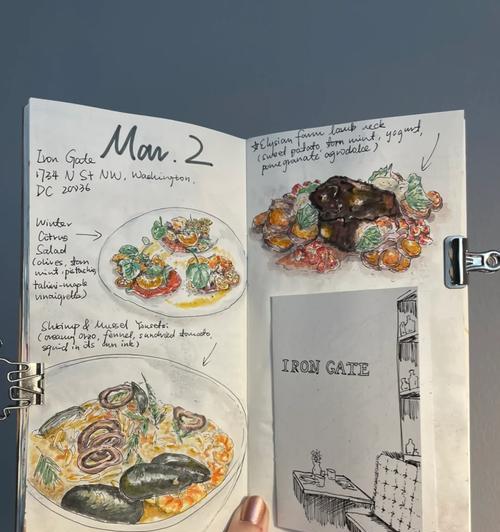 Mar. 2
Iron Gate
1734 N St NW, Washington,
DC 20036
Winter
Citrus
Salad
(olives, torn
mint, pistachio,
tahini-maple
vinaigrette)
Shrimp & Mussel Youvetsi:
(creamy orzo, fennel, sundried tomato,
squid in its own ink)
Elysian farm lamb neck
(sweet potato, torn mint, yogurt,
pomegranate agrodolce)
IRON GATE